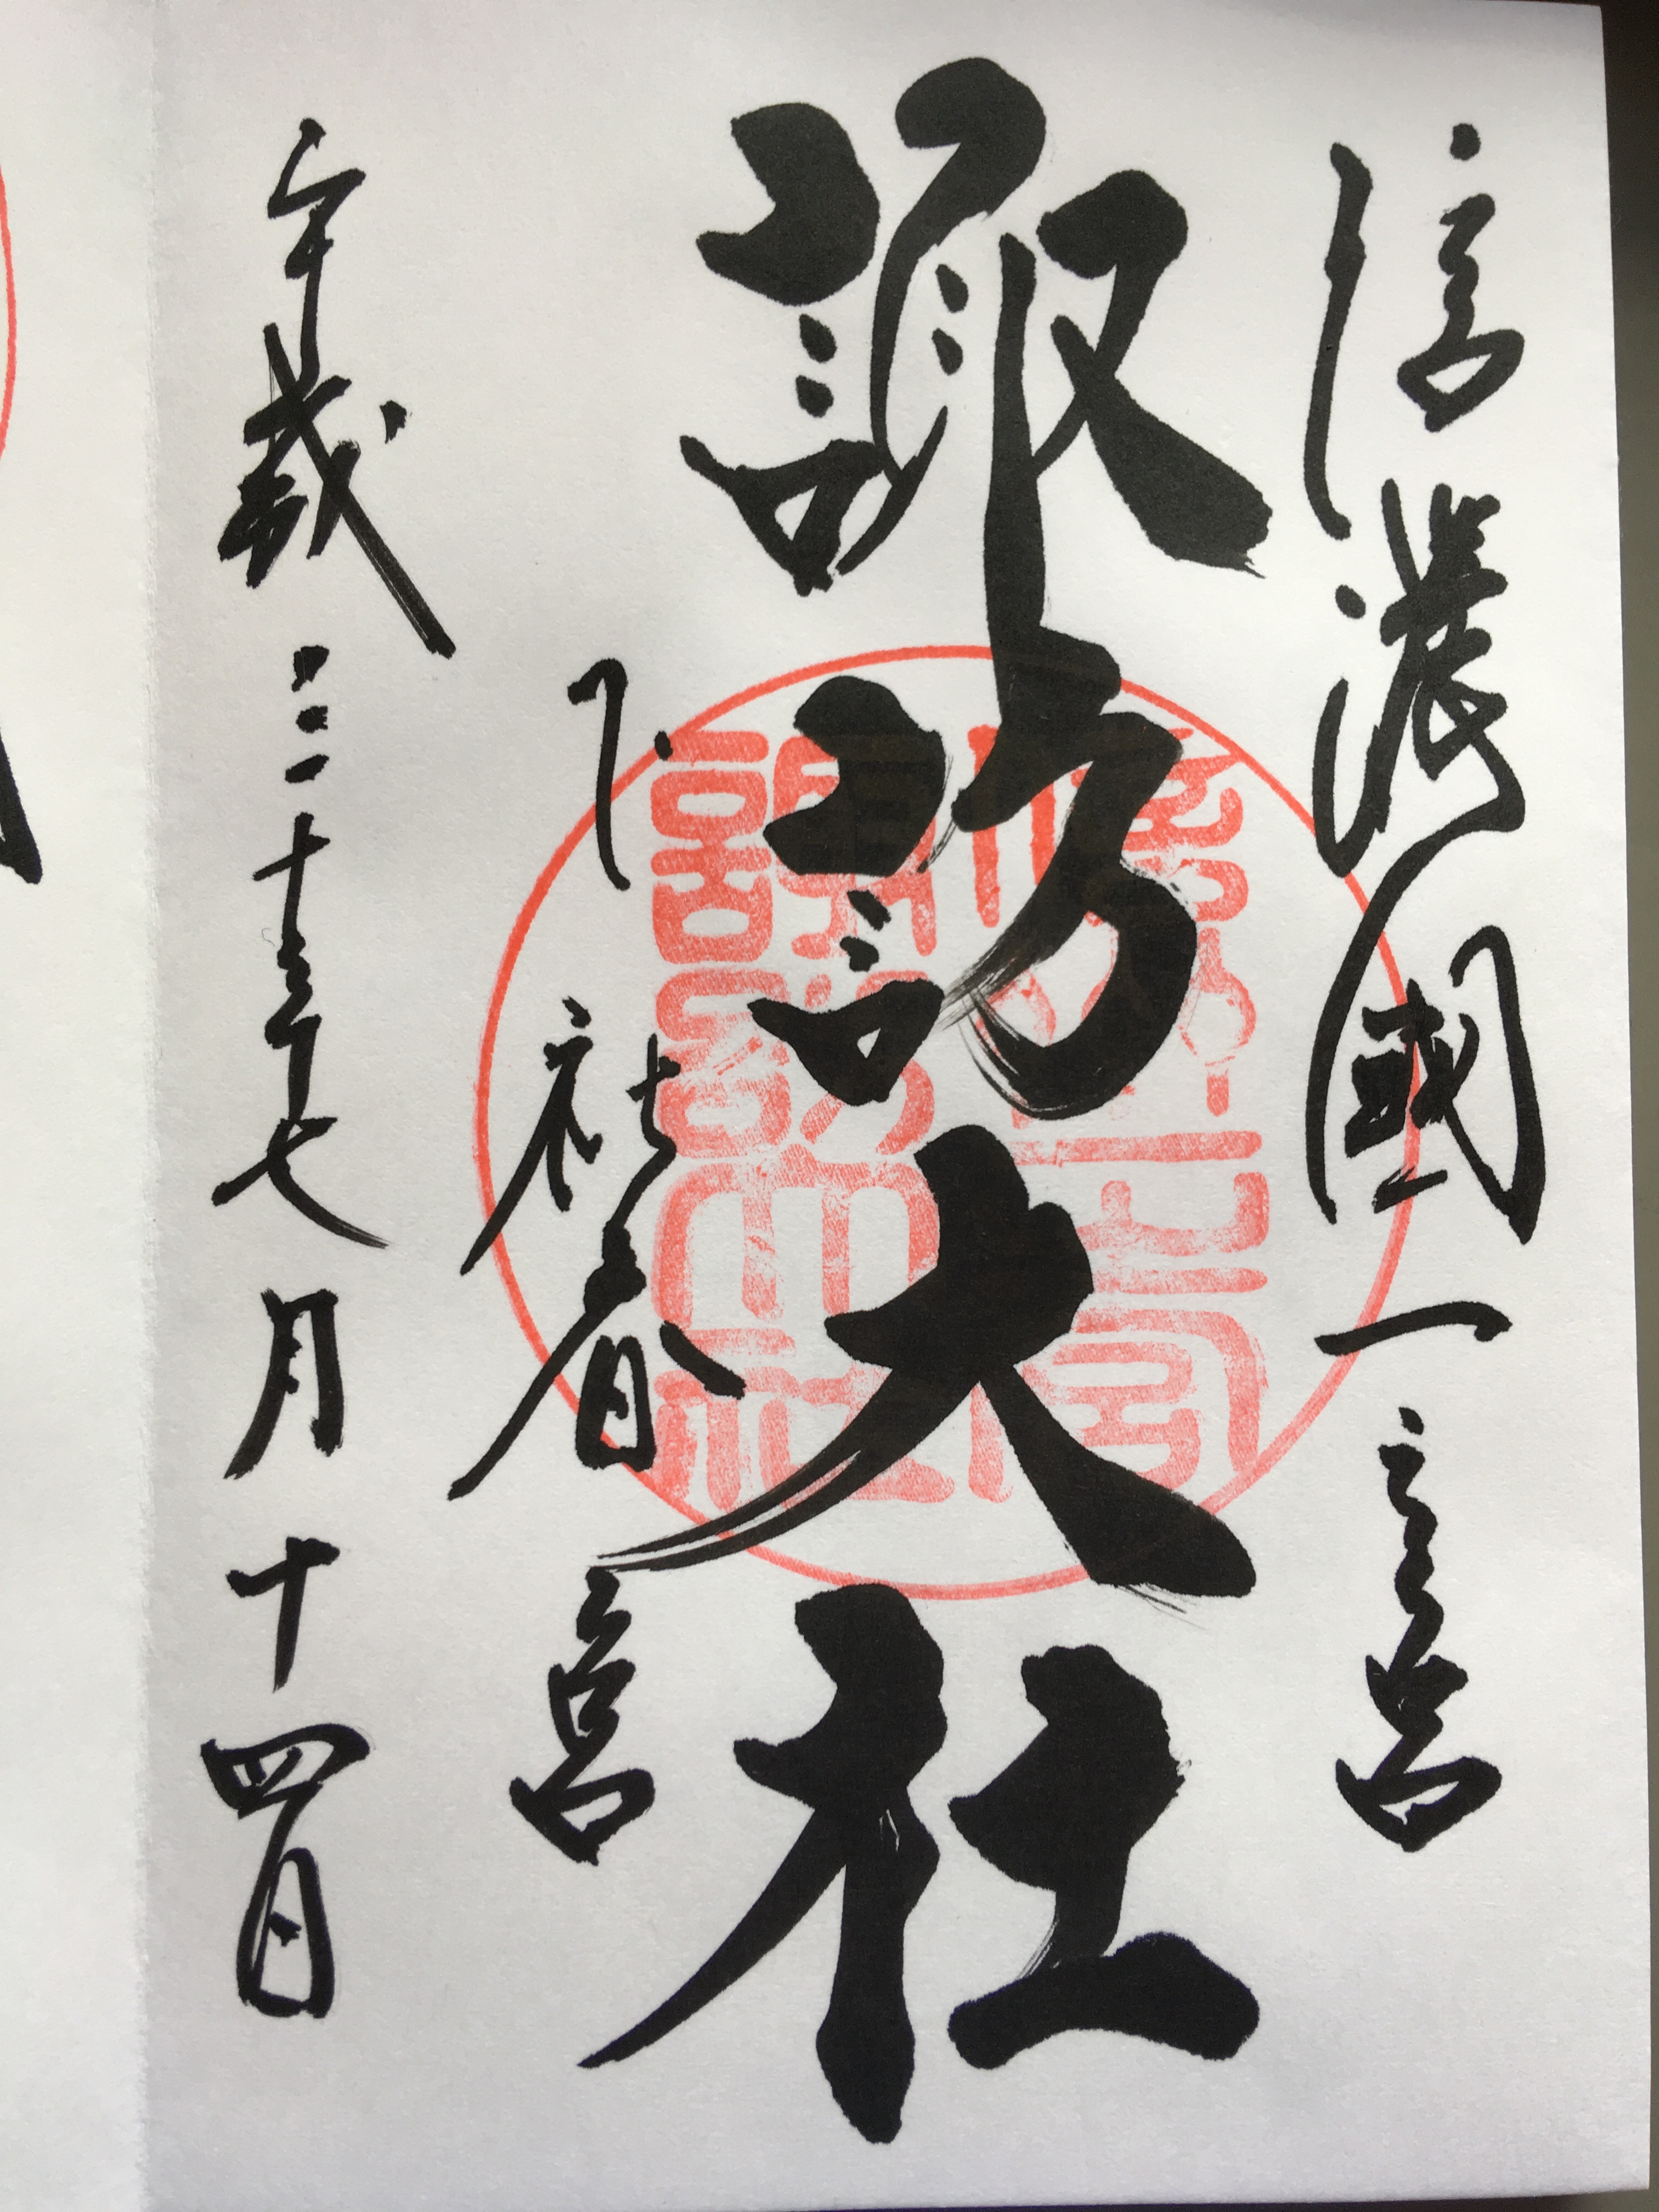 信濃國一之宮
諏訪大社
下社春宮
平成三十年七月十四日
諏訪大社